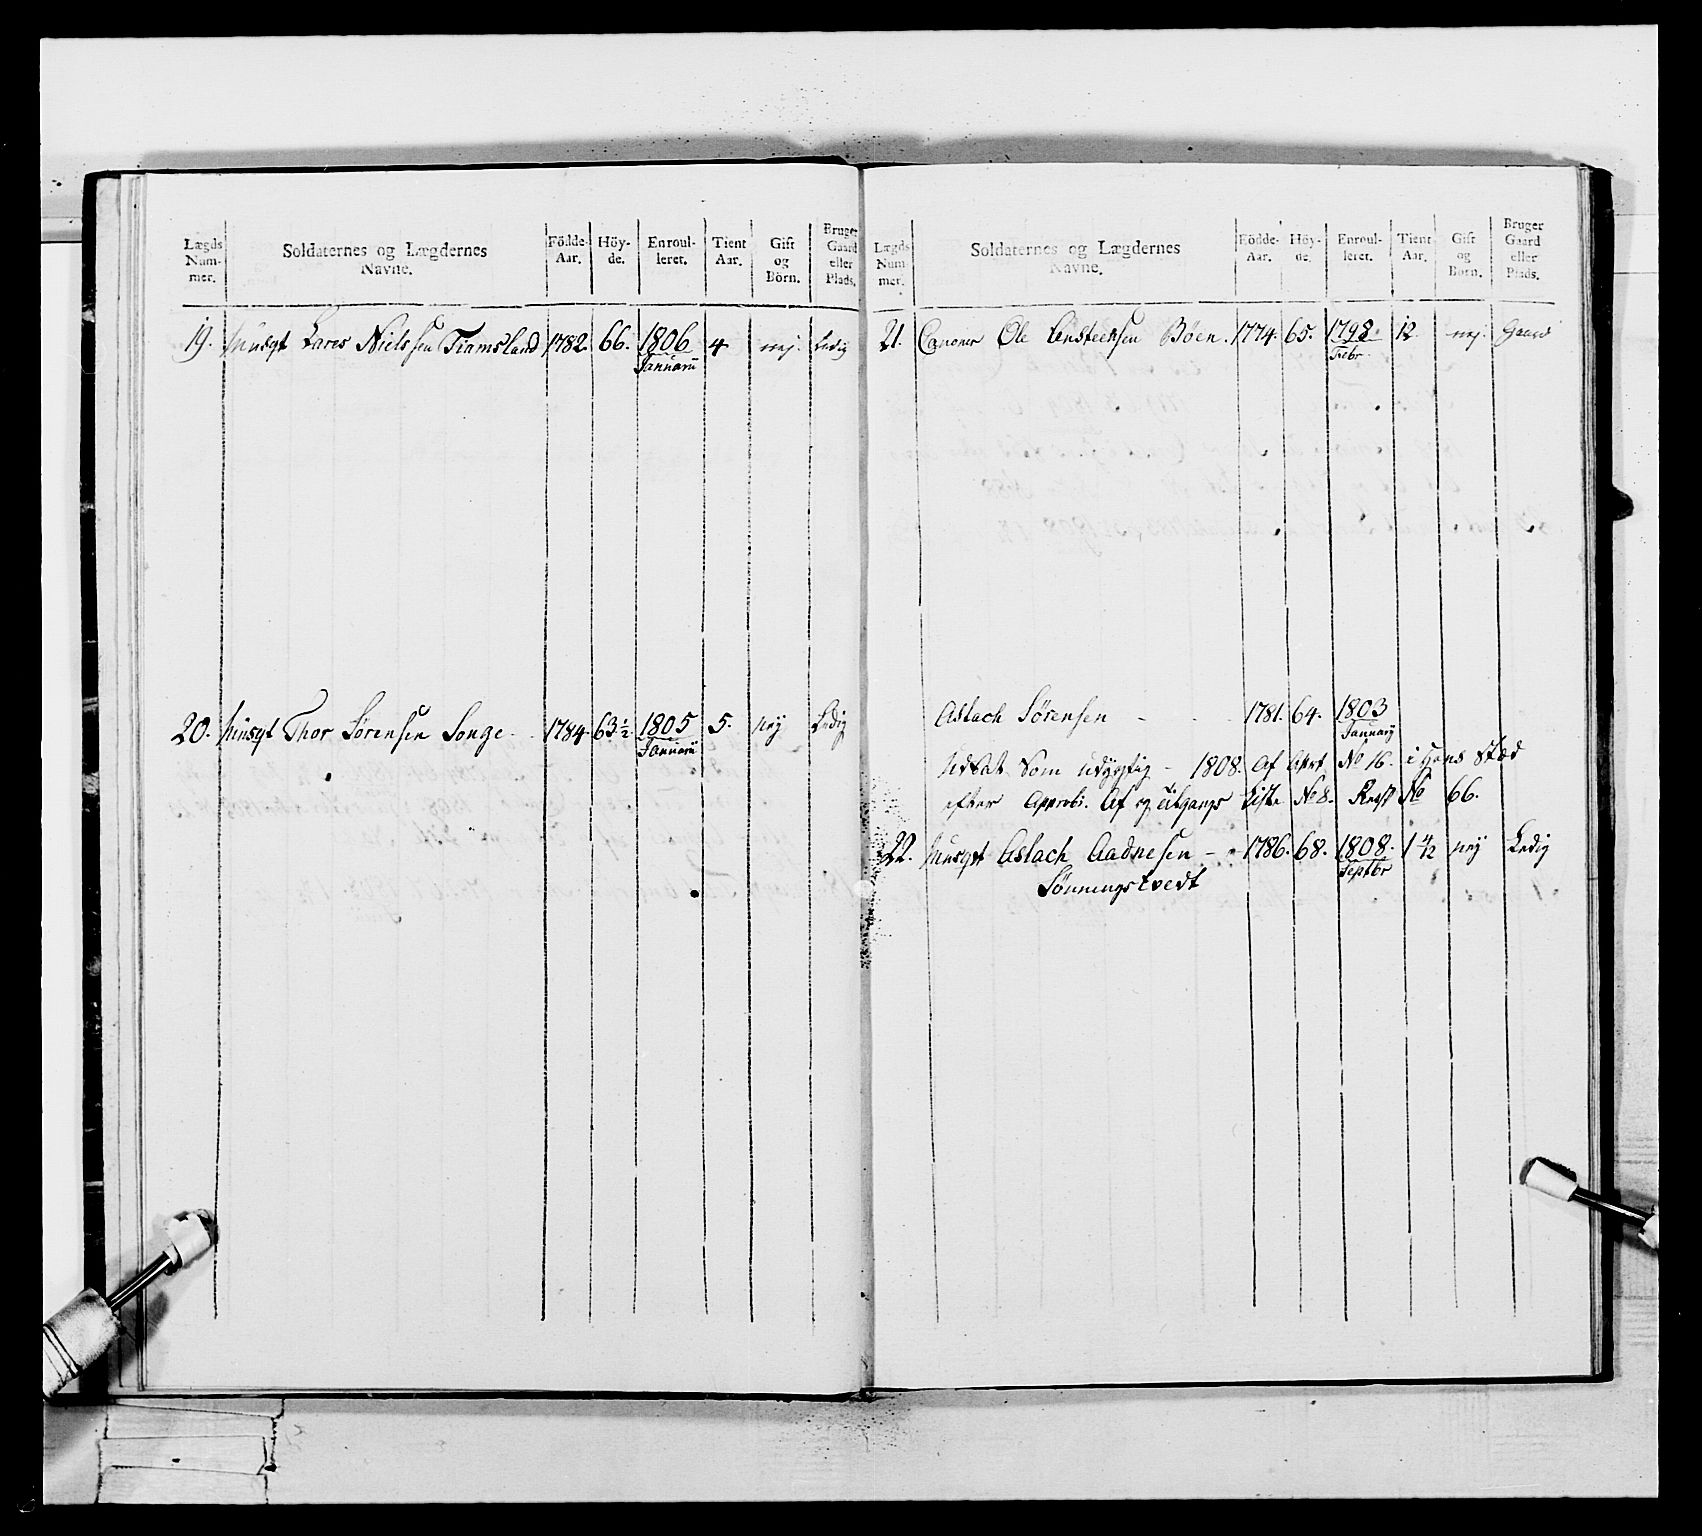 Lægds Num- mer. Soldaternes og Lægdernes Navne. Födde- Aar. Höy- de. Enroul- leret. Tient Aar. Gift og Börn. Bruger Gaard eller Plads.
19. Musqt Lares Nielssen Tiamsland 1782. 66. 1806 4 nej. Ledig
Januarii
20. Musqt Thor Sørensen Songe 1784 63½ 1805 5. nej Ledig
Januarii
Lægds Num- mer. Soldaternes og Lægdernes Navne. Födde- Aar. Höy- de. Enroul- leret. Tient Aar. Gift og Börn. Bruger Gaard eller Plads.
21. Canoner Ole Ensteensen Bøen. 1774. 65. 1798. 12 nej. Gaard
Febr.
Aslach Sørensen - 1781. 64. 1803
Januarij
Udsat som udygtig - 1808. Af No 16. i Hans Stæd
efter Approb. Af og Tilgangs Liste No 8. No 66.
22. Musqt Aslach Aadnesen - 1786. 68. 1808. 1 4/12 nej Ledig
Septbr
Sønningstvedt